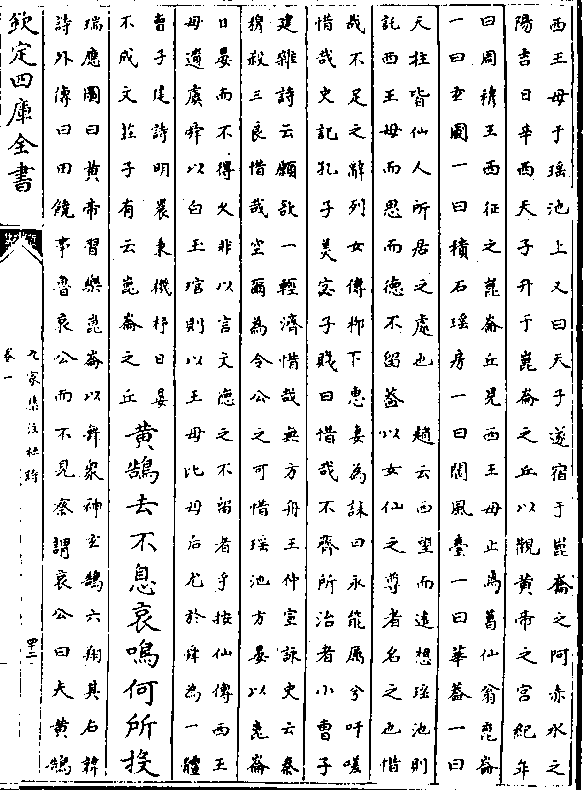 西王母于瑶池上又曰天子遂宿于崑崙之阿赤水之
陽吉日辛酉天子升于崑崙之丘以觀黄帝之宫紀年
曰周穆王西征之崑崙丘見西王母止焉葛仙翁崑崙
一曰玄圃一曰積石瑶房一曰閬風臺一曰華葢一曰
天柱皆仙人所居之處也 趙云西望而遠想瑶池則
託西王母而思而德不留葢以女仙之尊者名之也惜
哉不足之辭列女傳柳下惠妻為誄曰永能厲兮吁嗟
惜哉史記孔子美宓子賤曰惜哉不齊所治者小曹子
建雜詩云願欲一輕濟惜哉無方舟王仲宣詠史云秦
穆殺三良惜哉空爾為今公之可惜瑶池方晏以崑崙
日晏而不得久非以言文德之不留者乎按仙傳西王
母遺虞舜以白玉琯則以王母比母后尤於舜為一體
曹子建詩明晨秉機杼日晏
不成文莊子有云崑崙之丘
黄鵠去不息哀鳴何所投
瑞應圖曰黄帝習樂崑崙以舞衆神玄鶴六翔其右韓
詩外傳曰田饒事魯哀公而不見察謂哀公曰夫黄鵠
欽定四庫全書
九家集注杜詩
卷一
四二